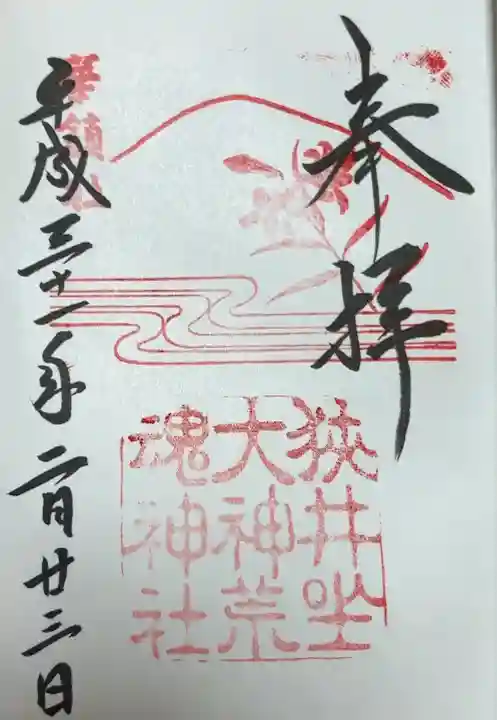 奉拝
狭井坐
大神荒
魂神社
華鎮社
平成三十一年二月廿三日